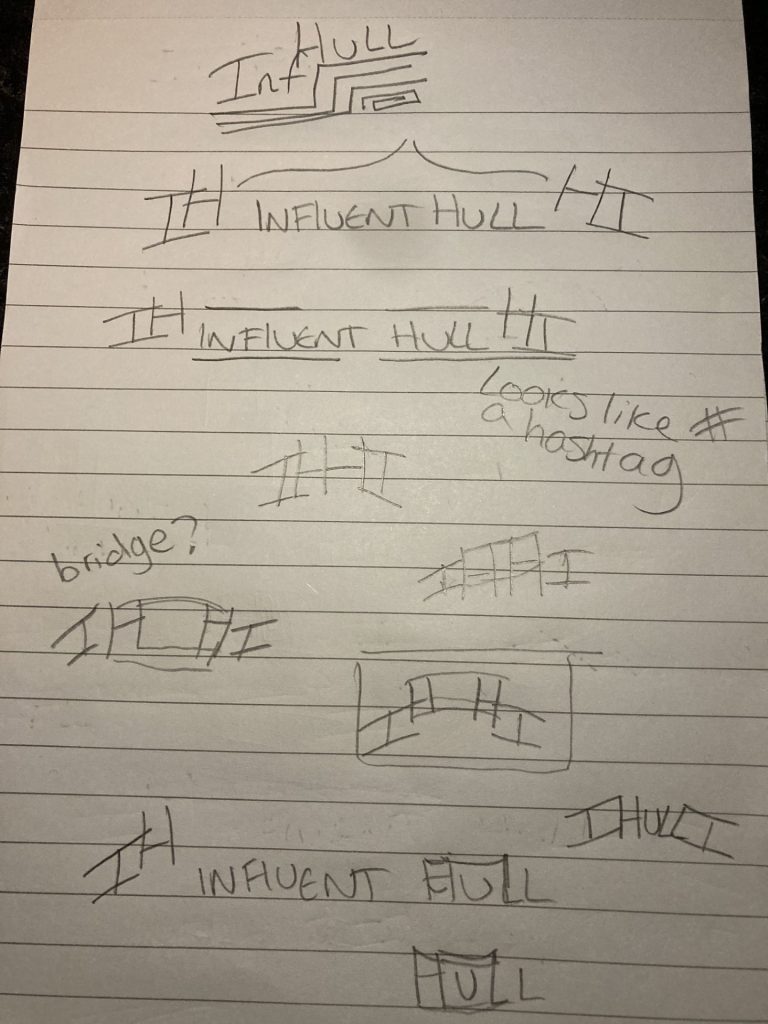 HULL
Inf
IH INFLUENT HULL HI
IH INFLUENT HULL HI
Looks like #
a hashtag
IHI
bridge?
IHHI
IHHI
IHHI
IHULLI
IH INFLUENT HULL
HULL